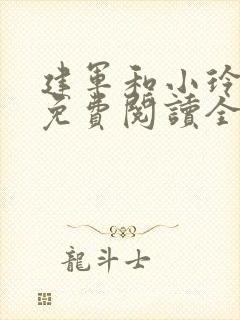 建軍和小玲
免費閱讀全
龍斗士